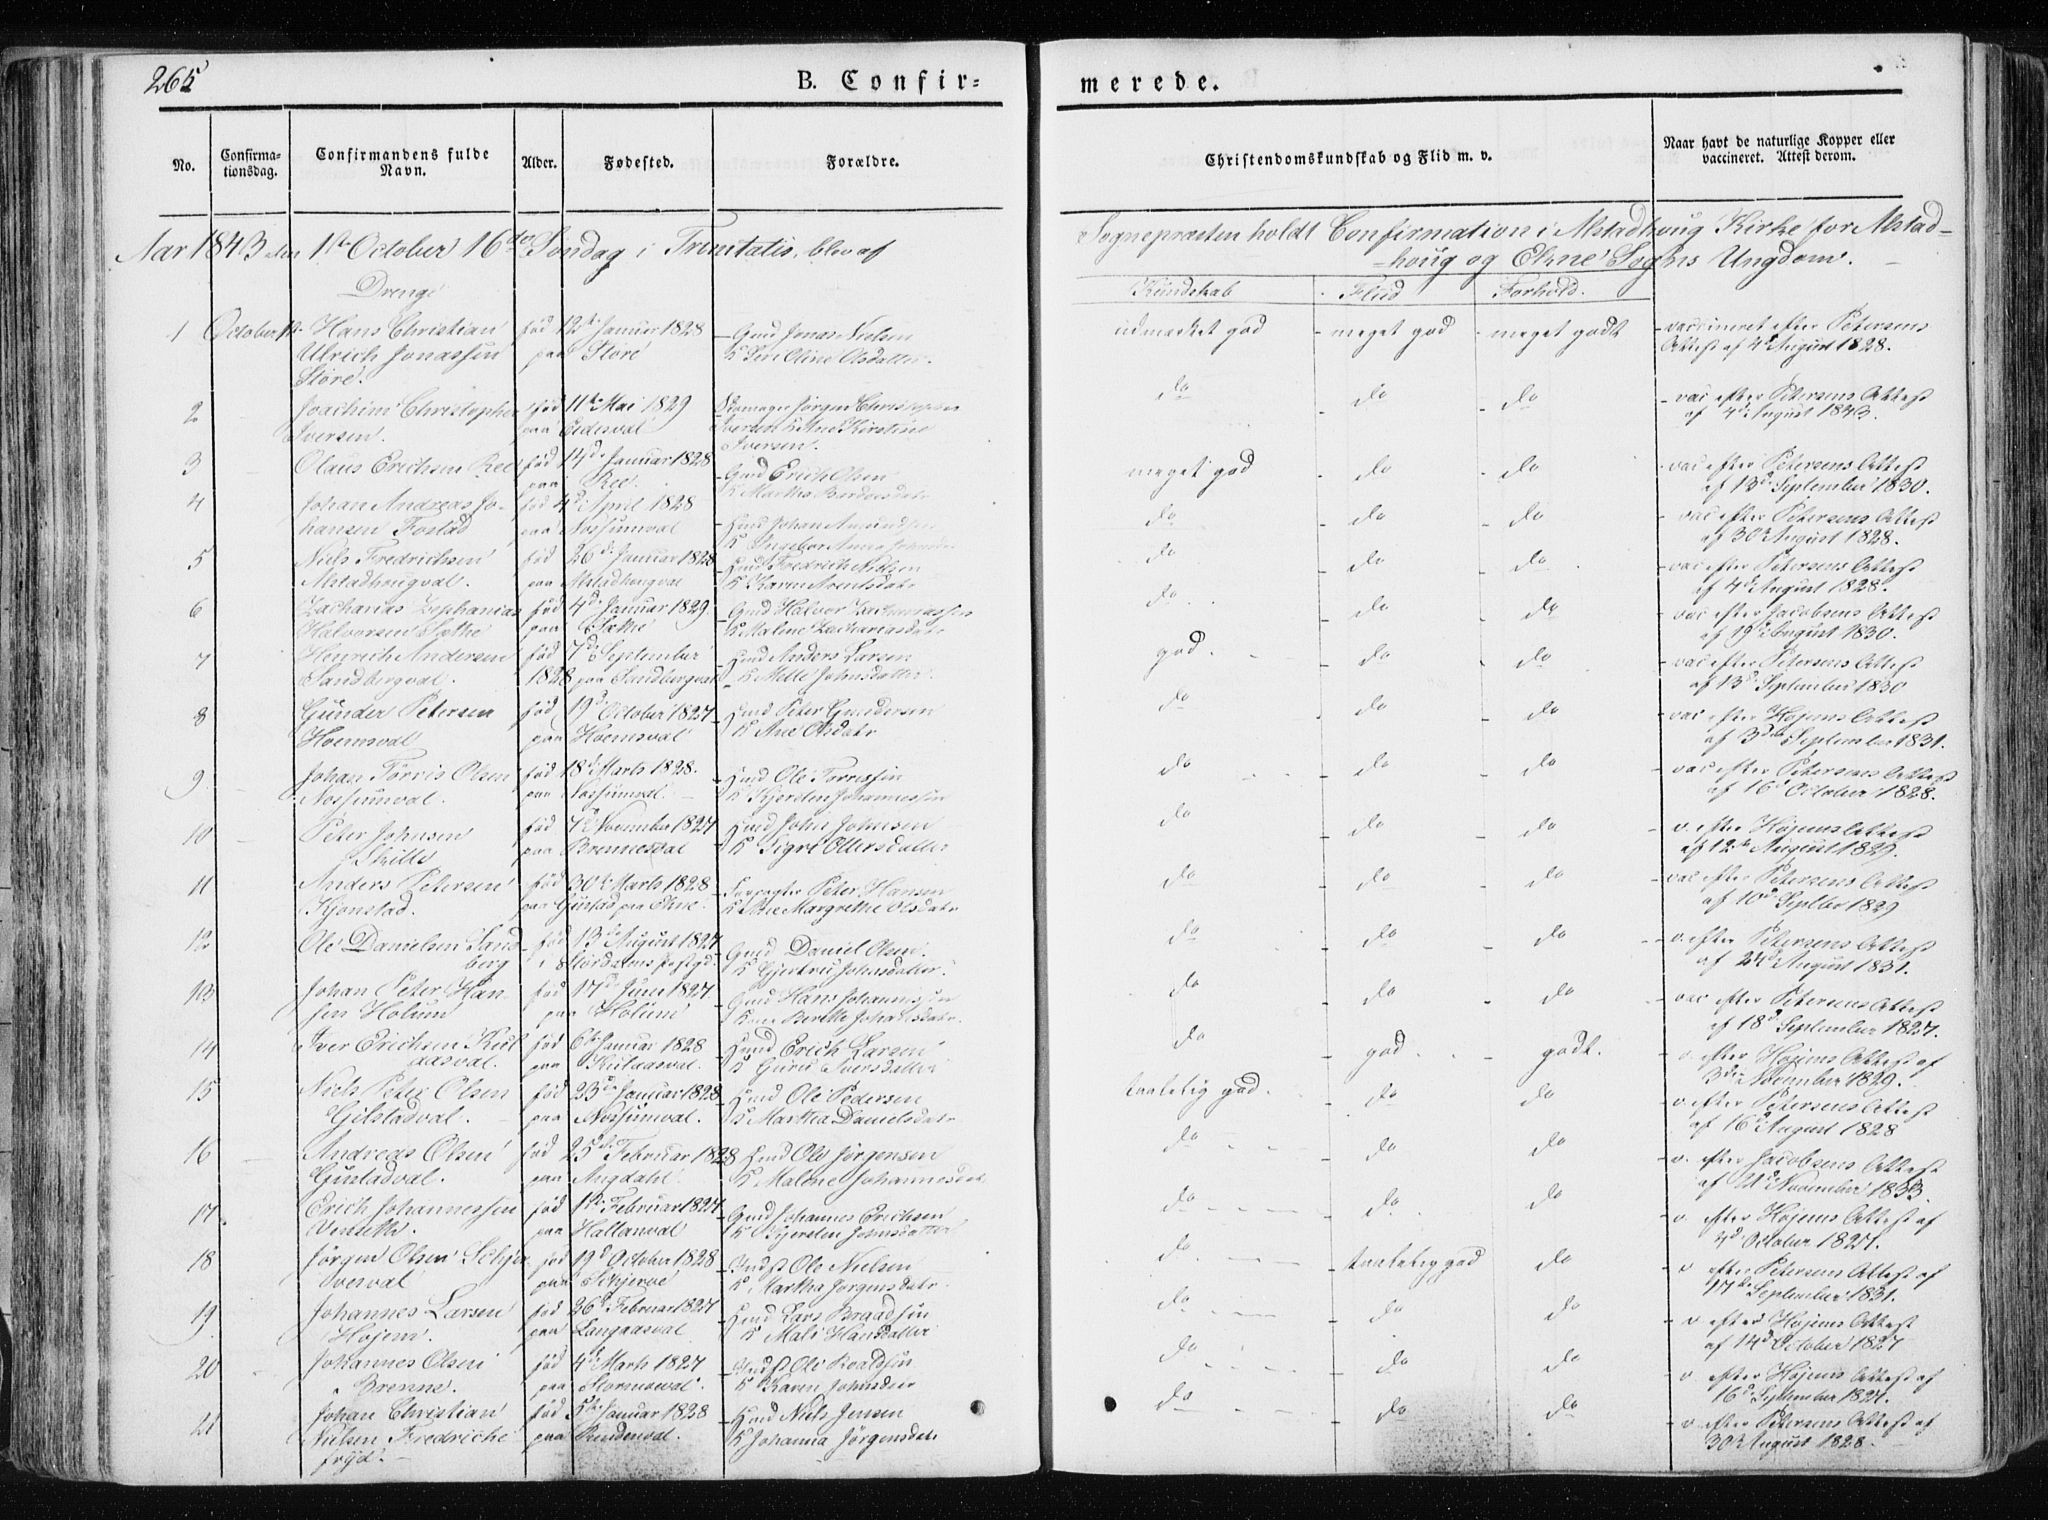 265
B. Confir-
merede.
No.
Confirma-
tionsdag.
Confirmandens fulde
Navn.
Alder.
Fødested.
Forældre.
Christendomskundskab og Flid m. v.
Naar havt de naturlige Kopper eller
vaccineret. Attest derom.
Aar 1843 den 1ste October 16de Søndag i Trinitatis, blev af
Sognepræsten holdt Confirmation i Alstadhoug Kirke for Alstad-
-houg og Ekne Sogns Ungdom.
Drenge
Kundskab Flid Forhold.
1 October 1ste Hans Christian fød 12te Januar 1828 Gmd Jonas Nielsen udmærket god meget god meget godt vaccineret efter Petersens
Ulrich Jonassen paa Støre Oline Olsdatter. Attest af 4de August 1828.
Støre.
2 Joachim Christopher fød 11te Mai 1829 Skomager Jørgen Christopher do do do vac efter Petersens Attest
Iversen. paa Eidesval Iversen K Ane Kirstine af 4de August 1843.
Iversen.
3 Olaus Erichsen Ree fød 14de Januar 1828 Gmd Erich Olsen meget god do do vac efter Petersens Attest
paa Ree. K Martha af 13de September 1830.
4 Johan Andreas Jo- fød 4de April 1828 Hmd Johan do do do vac efter Petersens Attest
hansen Fostad paa Nossumval K Ingebor Anna af 30te August 1828.
5 Niels Fredrichsen fød 26de Januar 1828 Hmd Fredrich Nielsen do do do vac efter Petersens Attest
Alstadhougval. paa Alstadhougval K Karen Arentsdatr af 4de August 1828.
6 Zacharias Zephanias fød 4de Januar 1829 Gmd Halvor Zachariassen do do do vac efter Jacobsens Attest
Halvorsen Sæthe paa Sæthe K Malene Zachariasdatr af 19de August 1830.
7 Hinrich Andersen fød 7de September Hmd Anders Larsen god do do vac efter Petersens Attest
Sandbergval. 1828 paa Sandbergval K Mette Johnsdatter. af 13de September 1830
8 Gunder Petersen fød 19de October 1827 Hmd Peter Gundersen do do do vac efter Højems Attest
Hoemsval paa Hoemsval K Ane Olsdatr af 3de September 1831.
9. Johan Tørris Olsen fød 18de Marts 1828. Hmd Ole Torrissen do do do vac efter Petersens Attest
Nossumval. paa Nossumval. K Kjersten Johannessen af 16de October 1828.
10 Peter Johnsen fød 7de November 1827 Hmd John Johnsen do do do v. efter Højems Attest
paa Brennesval K Sigri Ollersdatter af 12te August 1829.
11 Anders Petersen fød 30te Marts 1828 Forpagter Peter Hansen do do do vac efter Petersens Attest
Kjønstad. paa Gustad paa Ekne. K Ane Margrethe Olsdatr af 10de Septber 1829
12 Ole Danielsen Sand fød 13de August 1827 Gmd Daniel Olsen. do do do v. efter Petersens Attest
berg i Stordalens Præstgd. K Gjertru Johnsdatter. af 24de August 1831.
13 Johan Peter Han- fød 17de Juni 1827. Gmd Hans Johannessen do do do vac efter Petersens Attest
sen Holum paa Holum Berette af 18de September 1827.
14 Iver Erichsen Kul fød 6te Januar 1828 Hmd Erich Larsen do god godt. v. efter Højems Attest af
aasval. paa Kulaasval. K Guru Iversdatter 3die November 1829.
15 Niels Peter Olsen fød 23de Januar 1828 Hmd Ole Pedersen taalelig god. do do v. efter Petersens Attest
Gilstadval. paa Nossumval. K Martha Danielsdatr af 16de August 1828
16 Andreas Olsen fød 25de Februar 1828 Hmd Ole Jørgensen do do do v. efter Jacobsens Attest
Gustadval. paa Augdahl. K Malene Johannesdatr af 21de November 1833.
17 Erich Johannessen fød 1ste Februar 1827 Gmd Johannes Erichsen do do do v. efter Højems Attest af
Venseth. paa Hallanval K Kjersten Johnsdatter 4de October 1827.
18 Jørgen Olsen Schjer fød 19de October 1828 Indst Ole Nielsen do taalelig god do v efter Petersens Attest af
vesval paa Schjerve K Martha Jørgensdatr. 17de September 1831.
19. Johannes Larsen fød 26de Februar 1827 Hmd Lars Braadsen do do do v efter Højems Attest
Højem. paa Langaasval K Mali Hansdatter af 14de October 1827
20 Johannes Olsen fød 4de Marts 1827 Indst Ole Roaldsen do do do v. efter Højems Attest af
Brenne. paa Stormoval. K Karen 16de September 1827.
21 Johan Christian fød 5te Januar 1828 Hmd Niels Jensen do do do v. efter Petersens Attest af
Nielsen Fredriche paa K Johanna Jørgensdatr 30te August 1828.
fryd.